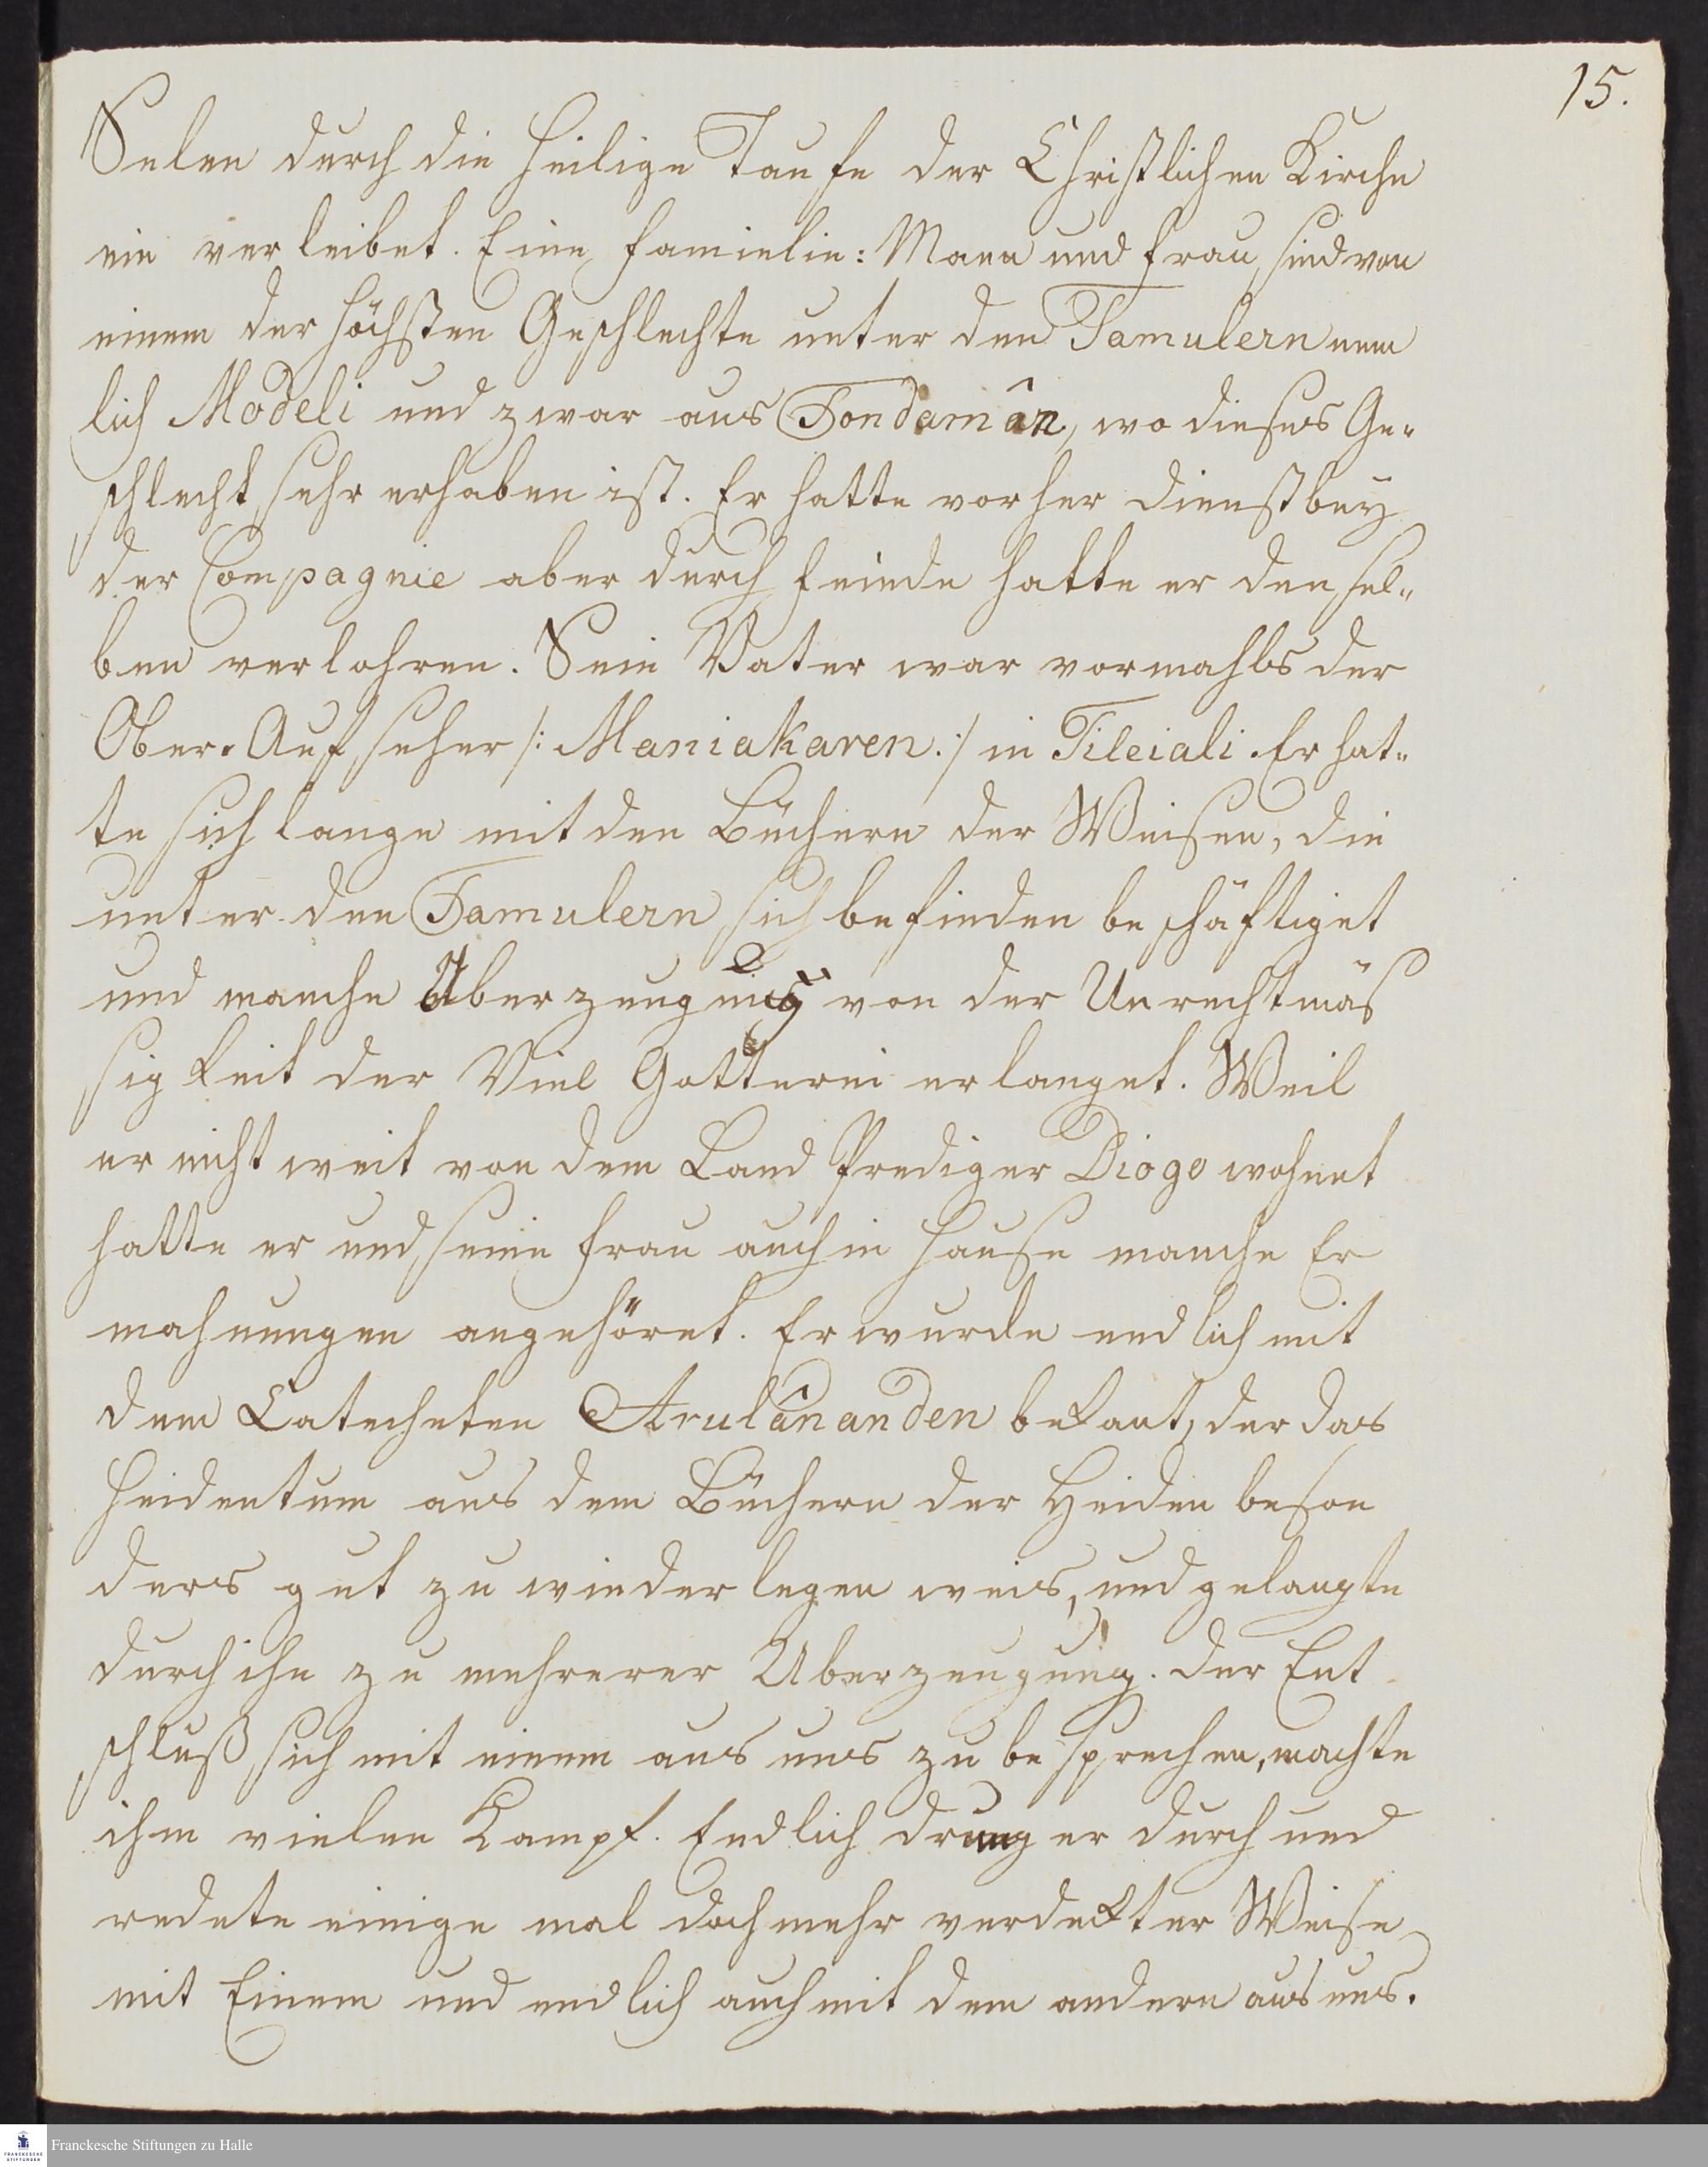 15.
Selen durch die heilige Taufe der Christlichen Kirche
ein verleibet. Eine familie: Mann und frau, sind von
einem der höchsten Geschlechte unter den Tamulern nem
lich Modeli und zwar aus Tondamân, wo dieses Ge-
schlecht sehr erhaben ist. Er hatte vorher dienst bey
der Compagnie aber durch feinde hatte er den sel-
ben verlohren. Sein Vater war vormahls der
Ober-Aufseher /: Maniakaren :/ in Tileiali. Er hat-
te sich lange mit den Büchern der Weisen, die
unter den Tamulern sich befinden beschäftiget
und manche Überzeugung von der Unrechtmäs
sigkeit der Viel Götterei erlanget. Weil
er nicht weit von dem Land Prediger Diogo wohnet
hatte er und seine frau auch in Hause manche Er
mahnungen angehöret. Er wurde endlich mit
dem Catecheten Arulânanden bekant, der das
Heidentum aus dem Büchern der Heiden beson
ders gut zu wiederlegen weis, und gelangte
durch ihn zu mehrerer Uberzeugung. Der Ent
schluß sich mit einem aus uns zu besprechen, machte
ihm vielen Kampf. Endlich drung er durch und
redete einige mal doch mehr verdekter Weise
mit Einem und endlich auch mit dem andern aus uns.
Franckesche Stiftungen zu Halle
FRANCKESCHE
STIFTUNGEN